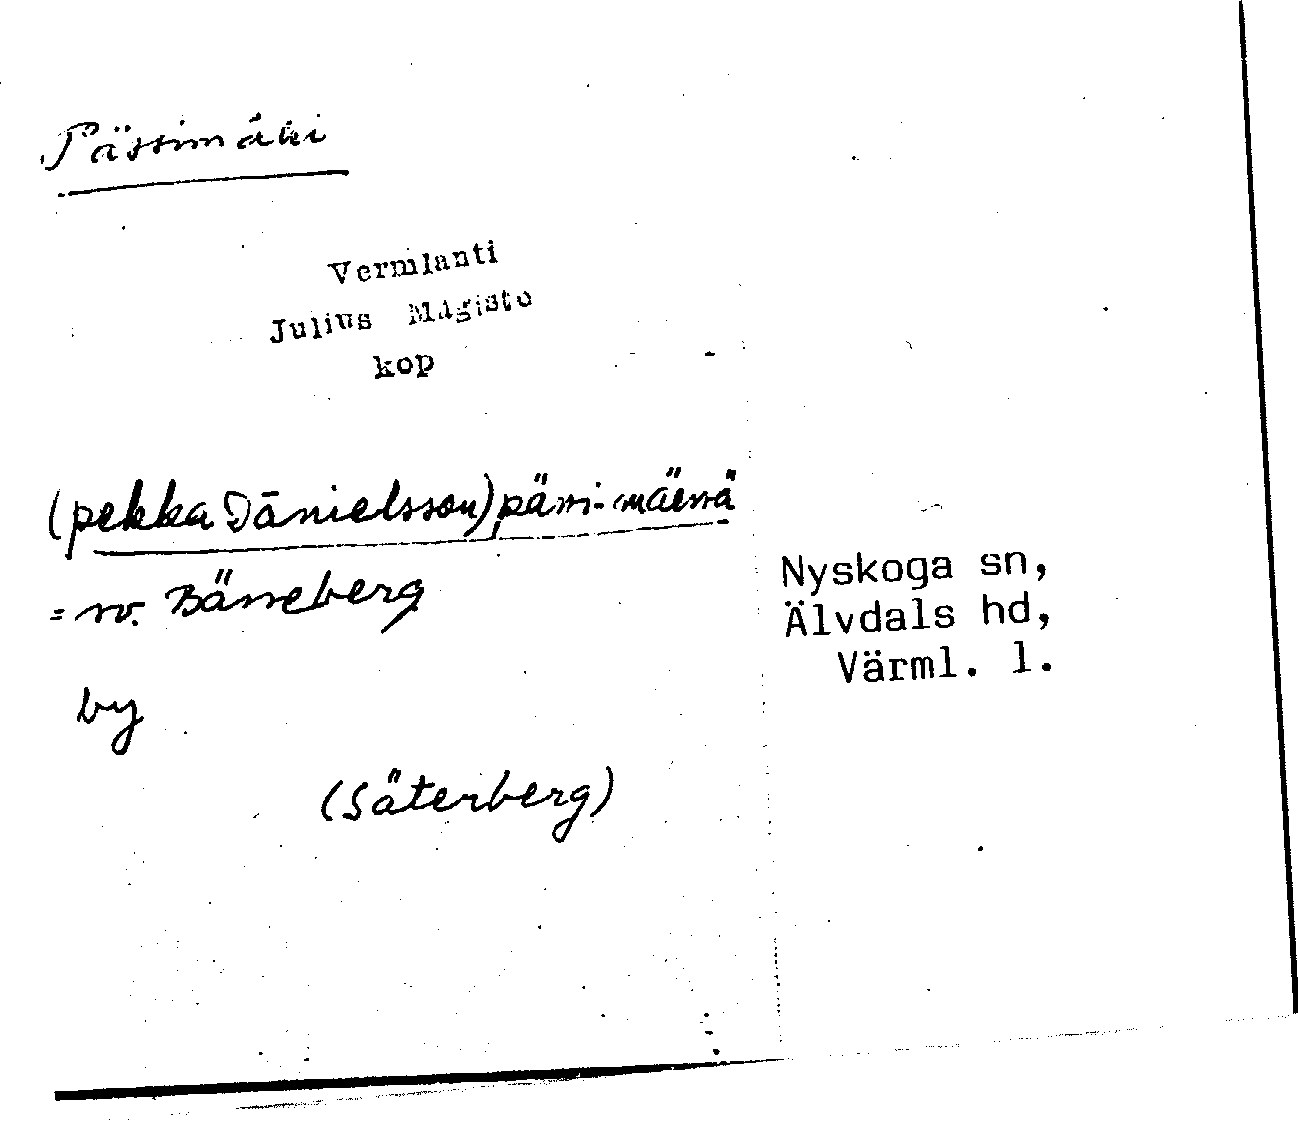 Pässimäki
Vermlanti
Julius Mägiste
kop
(pekka Dānielsson) pässi-mäessä
= rv. Bässeberg
by
(Säterberg)
Nyskoga sn,
Älvdals hd,
Värml. l.